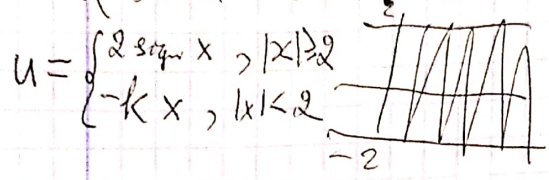 u = { 2 sign x , |x| ≥ 2
-k x , |x| < 2
2
-2